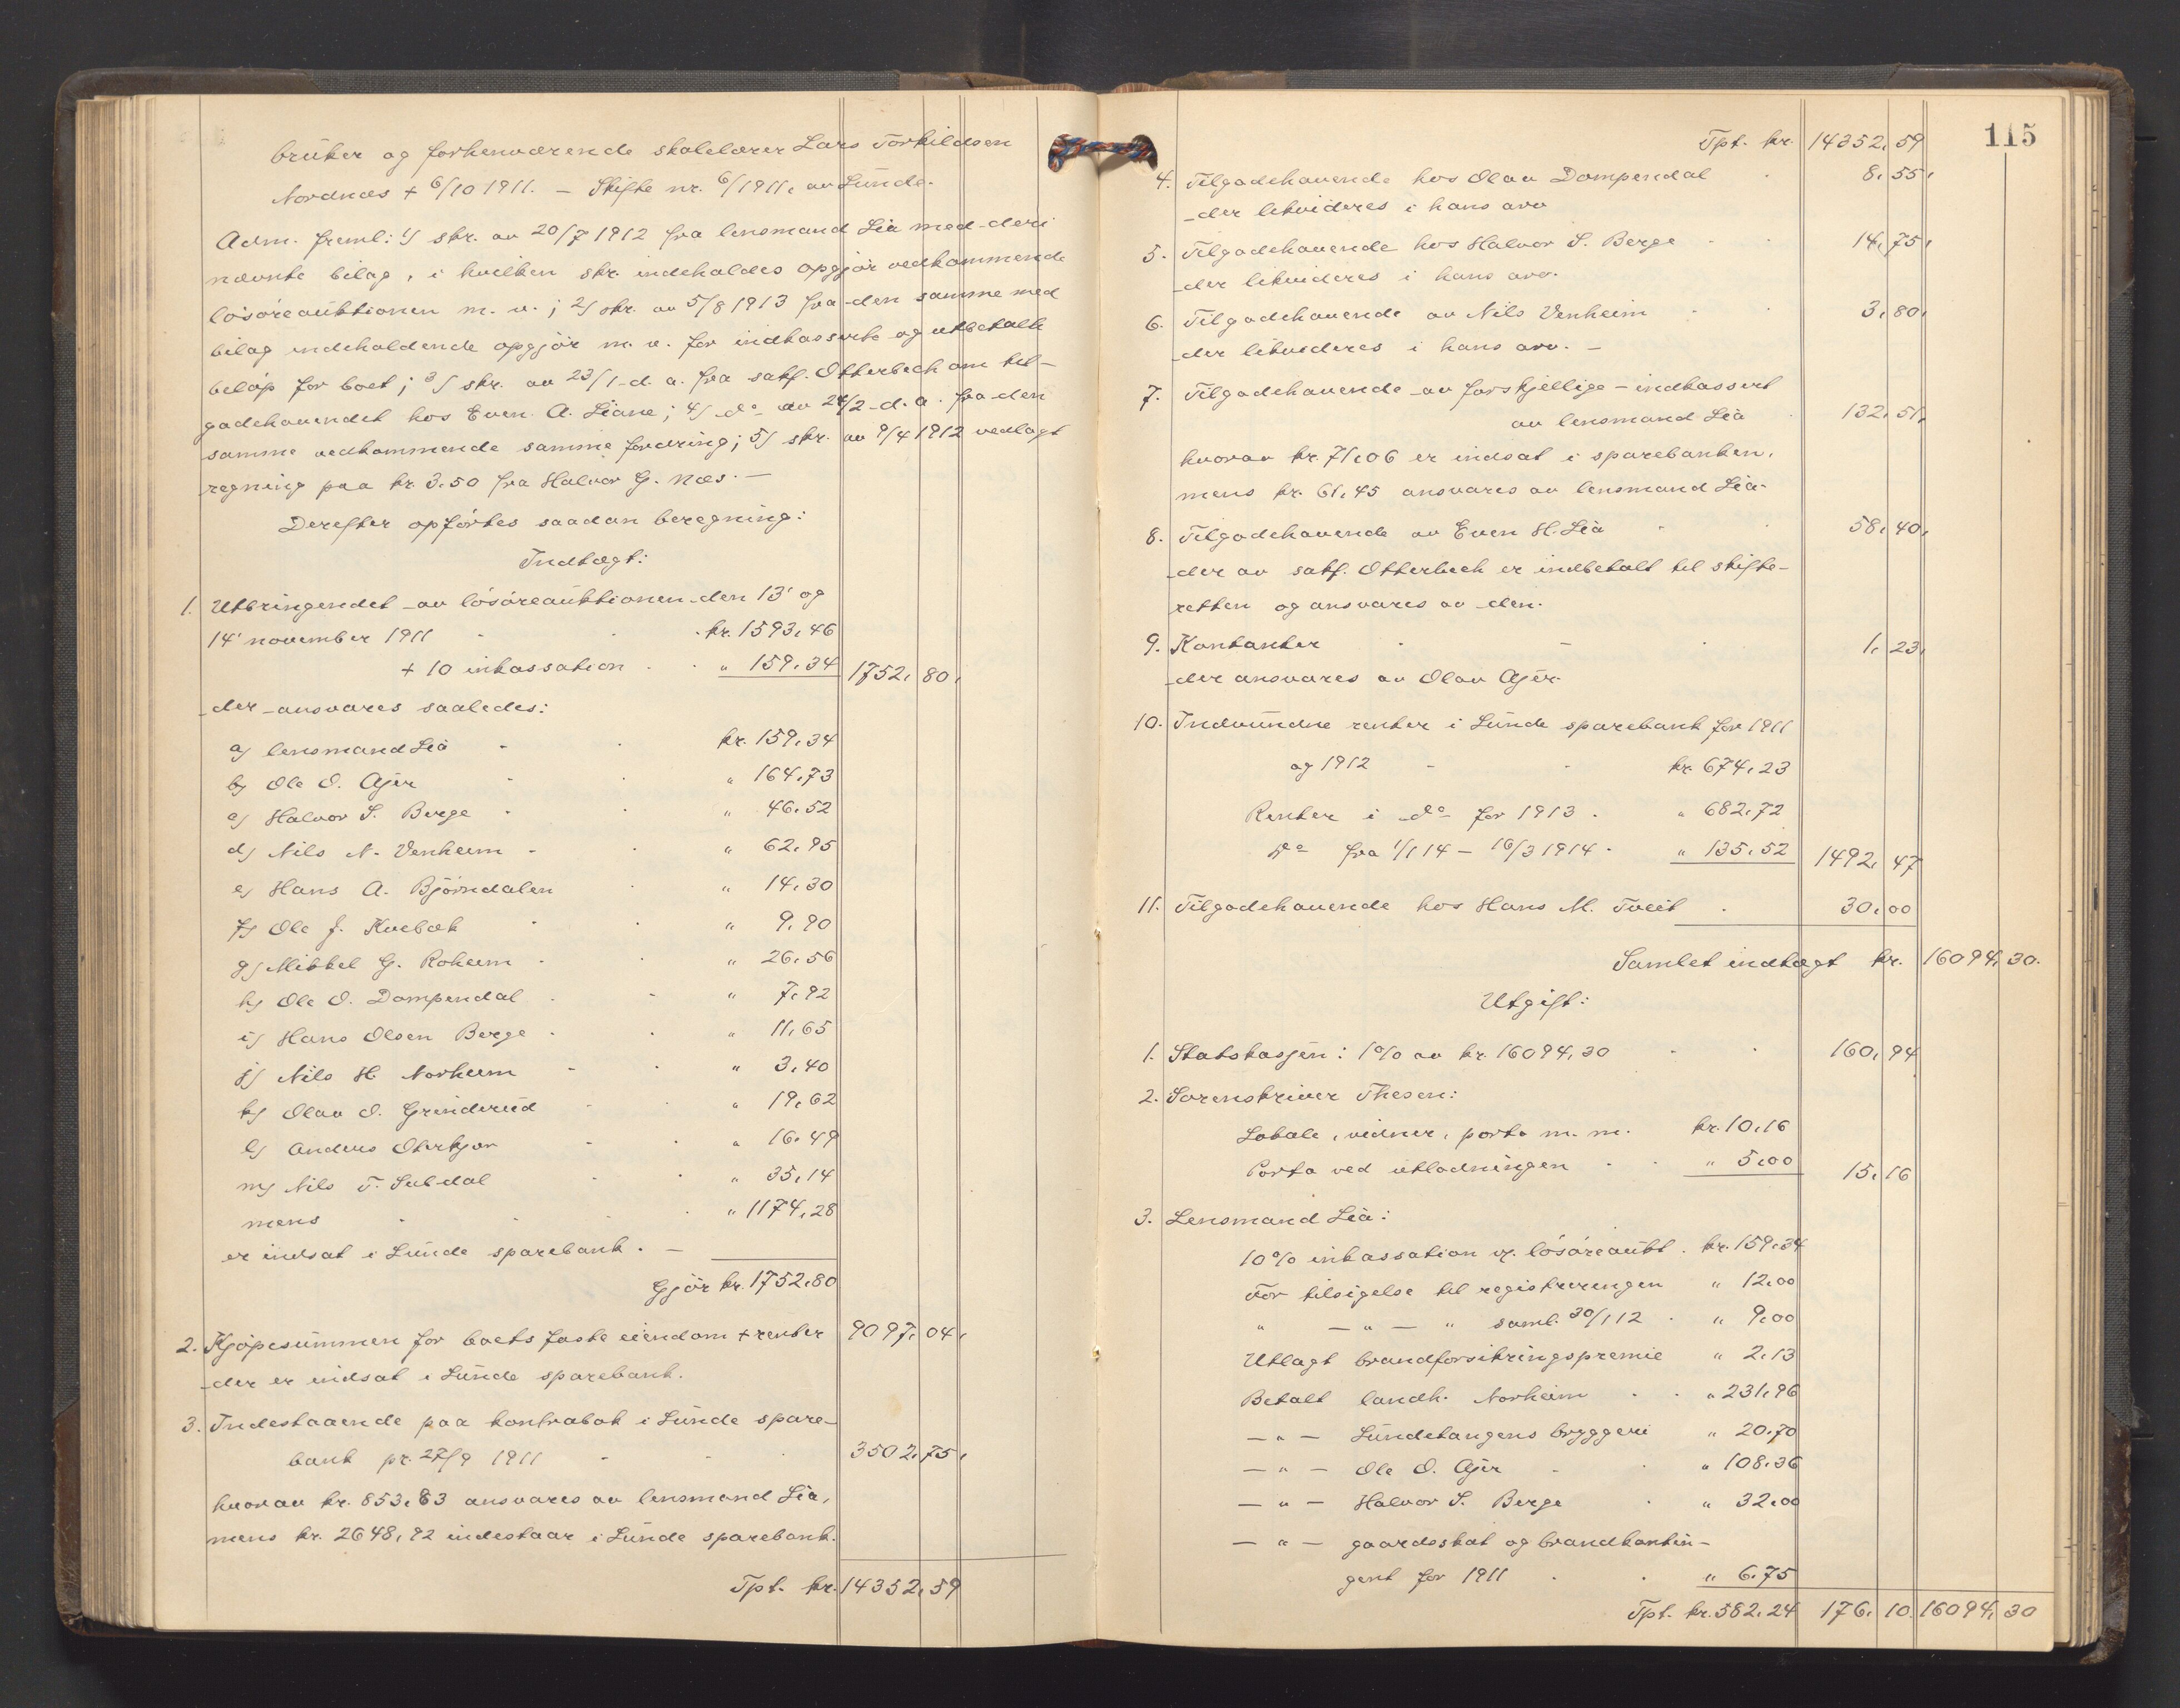 brúker og forhenværende skolelærer Lars Torkildsen
Nordnæs + 6/10 1911. – Skifte nr. 6/1911, av Lúnde.
Adm. freml: 1/ skr. av 20/7 1912 fra lensmand Lia med deri
nævnte bilag, i hvilken skr. indeholdes opgjør vedkommende
løsøreaúktionen m. v.; 2/ skr. av 5/8 1913 fra den samme med
bilag indeholdende opgjør m. v. for indkasserte og utbetalte
beløp for boet; 3/ skr. av 23/1 d. a. fra sakf. Otterbech om til-
godehavendet hos Even A. Liane; 4/ do av 24/2 d. a. fra den
samme vedkommende samme fordring; 5/ skr. av 9/4 1912 vedlagt
regning paa kr. 3.50 fra Halvor G. Næs. –
Derefter opførtes saadan beregning:
Indtægt:
1. Utbringendet av løsøreaúktionen den 13' og
14' november 1911 kr. 1593,46
+ 10 inkassation " 159,34 1752, 80,
der ansvares saaledes:
a/ lensmand Lia kr. 159,34
b/ Ole O. Ajer " 164,73
c/ Halvor S. Berge " 46,52
d/ Nils N. Venheim " 62,95
e/ Hans A. Bjørndalen " 14,30
f/ Ole J. Kvebæk " 9,90
g/ Mikkel G. Roheim " 26,56
h/ Ole O. Dampendal " 7,92
i/ Hans Olsen Berge " 11,65
j/ Nils H. Norheim " 3,40
k/ Olav O. Grinderúd " 19,62
l/ Anders Oterkjær " 16,49
m/ Nils T. Súbdal " 35,14
mens " 1174,28
er indsat i Lúnde sparebank. –
Gjør kr. 1752,80
2. Kjøpesúmmen for boets faste eiendom + renter 9097, 04,
der er indsat i Lúnde sparebank.
3. Indestaaende paa kontrabok i Lúnde spare-
bank pr. 27/9 1911 3502, 75,
hvorav kr. 853,83 ansvares av lensmand Lia,
mens kr. 2648,92 indestaar i Lúnde sparebank.
Tpt. kr. 14352, 59
115
Tpt. kr. 14352, 59
4. Tilgodehavende hos Olav Dampendal 8, 55,
der likvideres i hans arv
5. Tilgodehavende hos Halvor S. Berge 14, 75,
der likvideres i hans arv.
6. Tilgodehavende av Nils Venheim 3, 80,
der likvideres i hans arv. –
7. Tilgodehavende av forskjellige – indkassert
av lensmand Lia 132, 51,
hvorav kr. 71,06 er indsat i sparebanken,
mens kr. 61,45 ansvares av lensmand Lia.
8. Tilgodehavende av Even H. Lia 58, 40,
der av sakf. Otterbech er indbetalt til skifte-
retten og ansvares av den.
9. Kontanter 1, 23,
der ansvares av Olav Ajer.
10. Indvúndne renter i Lúnde sparebank for 1911
og 1912 kr. 674,23
Renter i do for 1913 " 682,72
Do fra 1/1 14 – 16/3 1914 " 135,52 1492, 47
11. Tilgodehavende hos Hans M. Tveit 30,00
Samlet indtægt kr. 16094, 30.
Utgift:
1. Statskassen: 1% av kr. 16094,30 160, 94
2. Sorenskriver Thesen:
Lokale, vidner, porto m. m. kr. 10,16
Porto ved utlodningen " 5,00 15, 16
3. Lensmand Lia:
10% inkassation v. løsøreaúkt. kr. 159,34
For tilsigelse til registreringen " 12,00
" – " – " saml. 30/1 12 " 9,00
Utlagt brandforsikringspremie " 2,13
Betalt landh. Norheim " 231,96
– " – Lúndetangens bryggeri " 20,70
– " – Ole O. Ajer " 108,36
– " – Halvor S. Berge " 32,00
– " – gaardsskat og brandkontin-
gent for 1911 " 6,75
Tpt. kr. 582,24 176, 10. 16094, 30